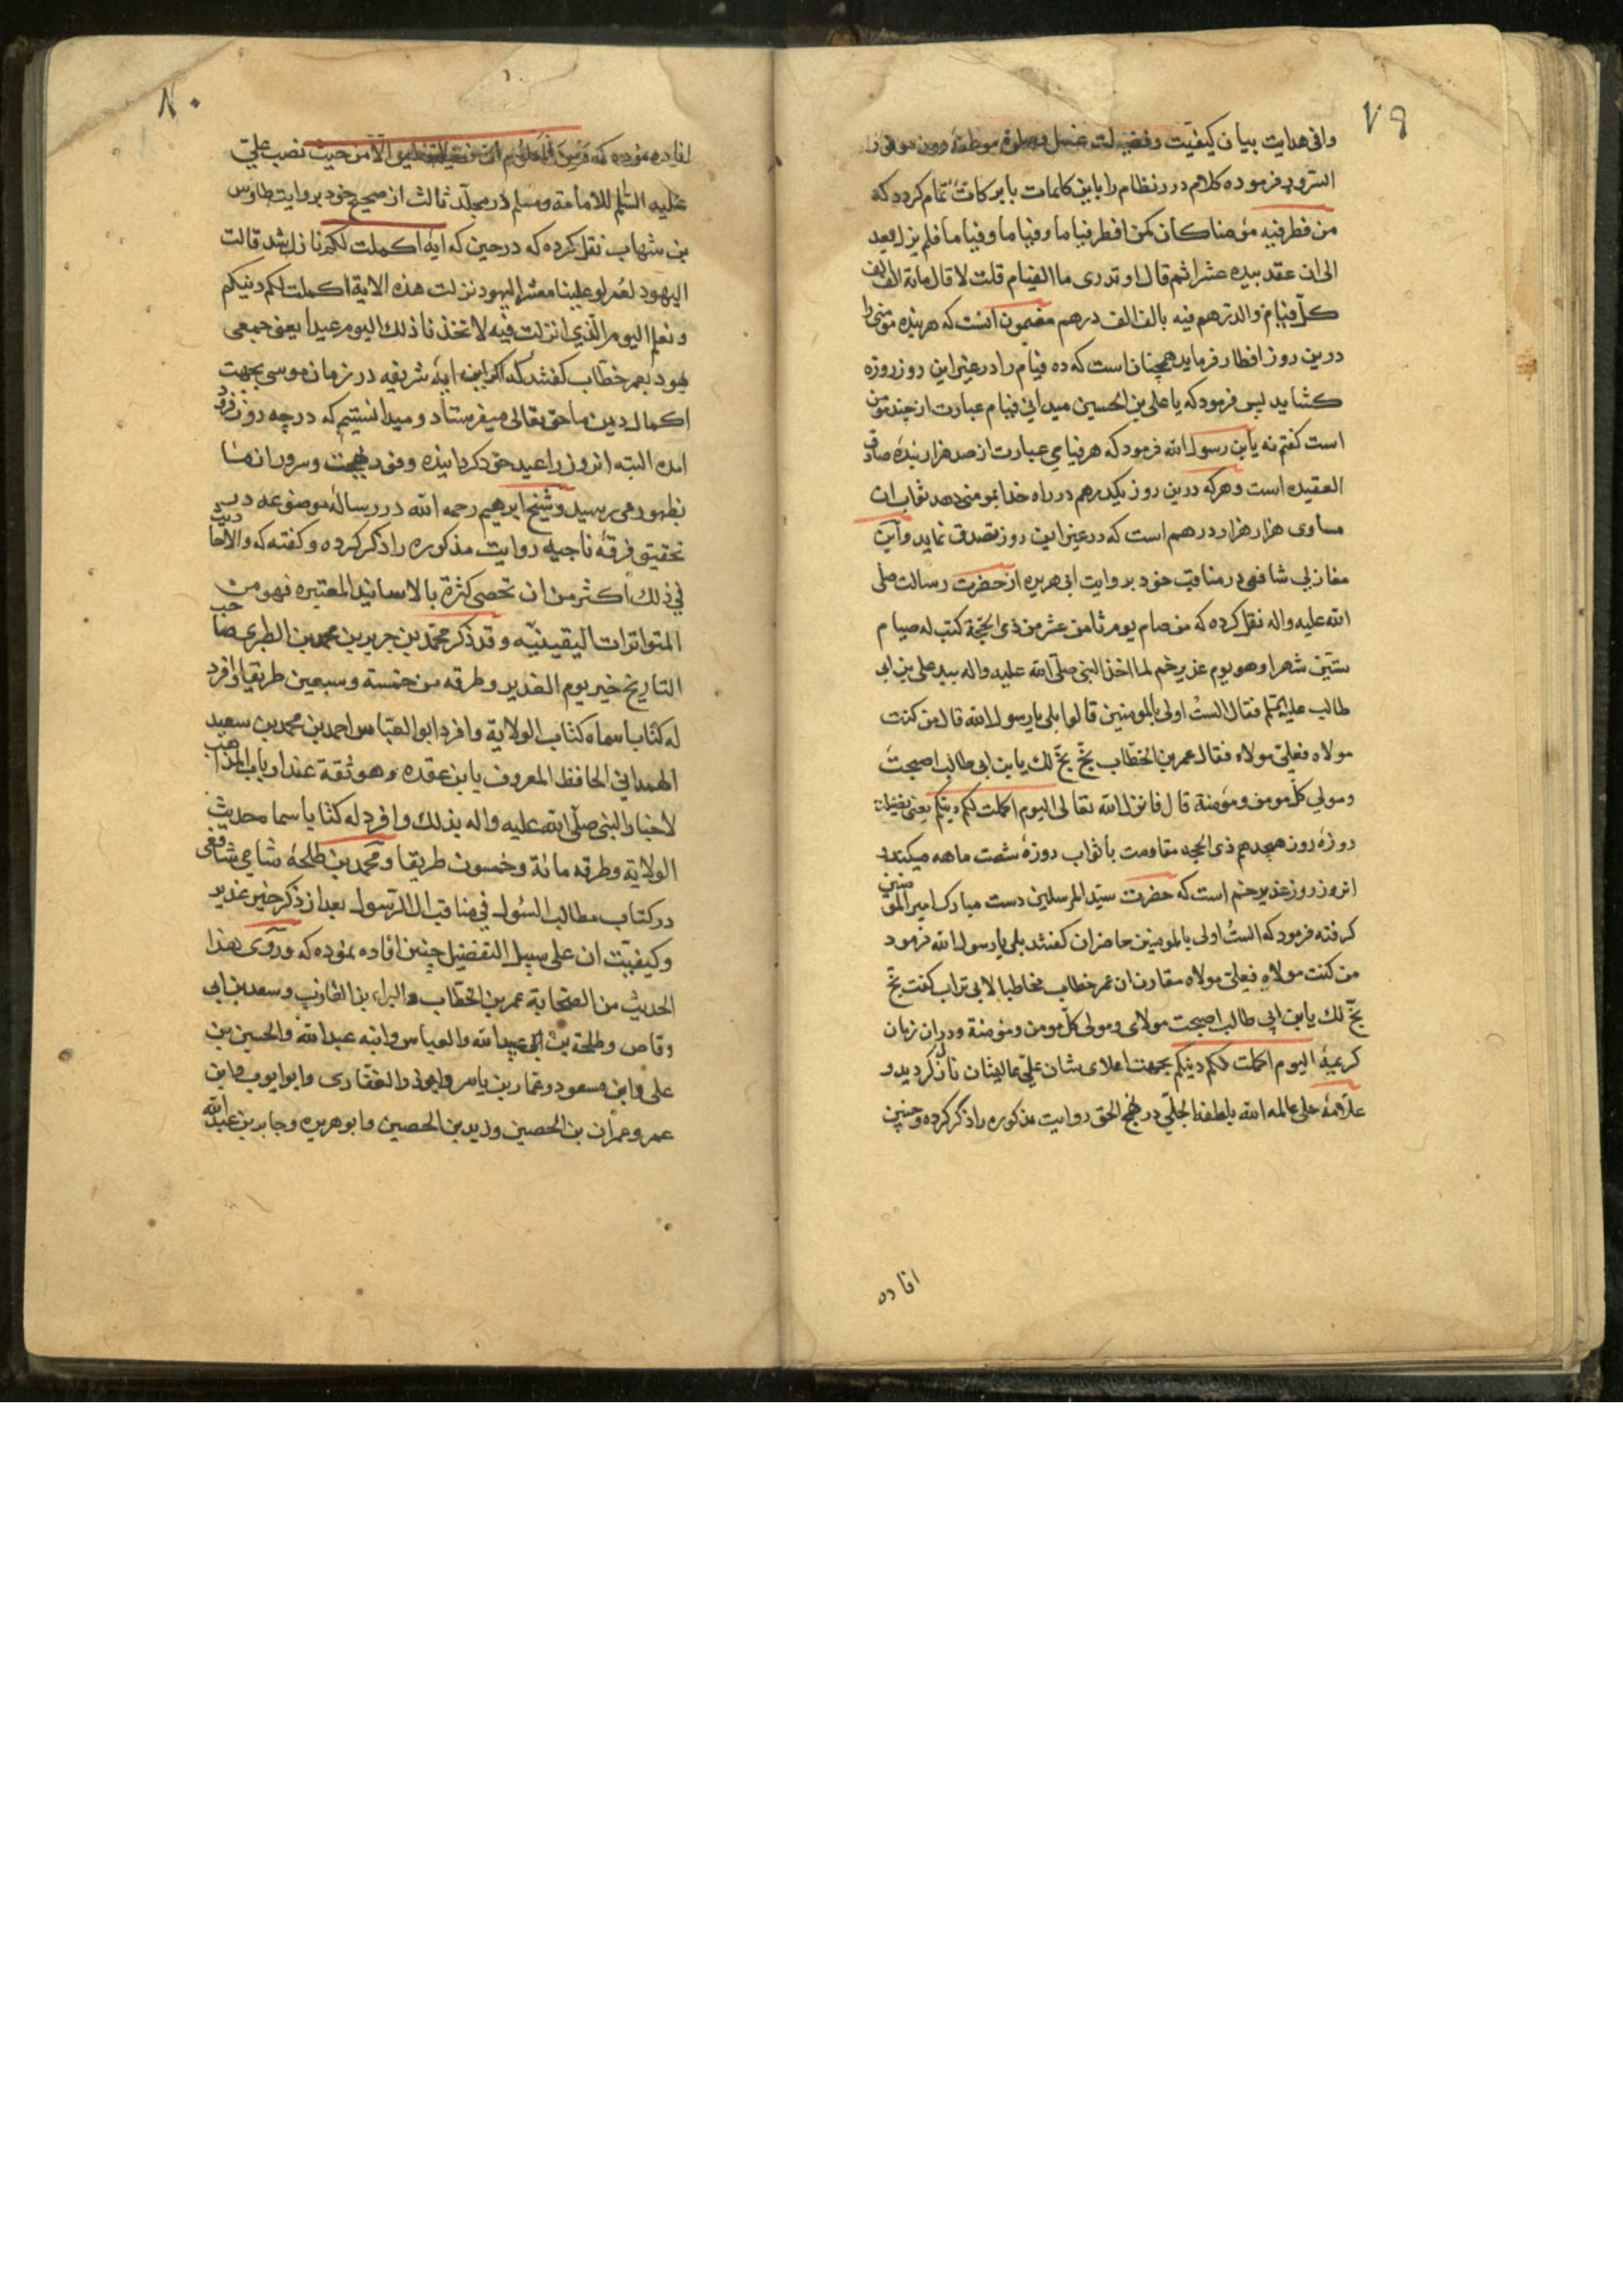 ۷۹
وافی هدایت بیان کیفیت وفضیلت غسل وصلوة موظفهٔ روز
السرور فرموده کلام درر نظام را باین کلمات بابرکات تمام کردد که
من فطر فیه مؤمنا کان کمن افطر فیاما وفیاما وفیاما فلم یزل یعد
الی ان عقد بیده عشرا ثم قال او تدری ما الفیام قلت لا قال مایة الف
کل فیام والدرهم فیه بالف الف درهم مضمون انست که هر بنده مؤمنی را
درین روز افطار فرماید همچنانست که ده فیام را در عین این روز روزه
کشاید پس فرمود که یا علی بن الحسین میدانی فیام عبارت از چند مؤمن
است کفتم نه یابن رسول الله فرمود که هر فیامی عبارت از صد هزار بندهٔ صادق
العقیده است وهرکه درین روز یکدرهم در راه خدا بمومنی دهد ثواب ان
مساوی هزار هزار درهم است که در عین این روز تصدق نماید وابن
مغازلی شافعی در مناقب خود بروایت ابی هریره از حضرت رسالت صلی
الله علیه واله نقل کرده که من صام یوم ثامن عشر من ذی الحجة کتب له صیام
ستین شهرا وهو یوم غدیر خم لما اخذ النبی صلی الله علیه واله بید علی بن ابی
طالب علیه السلم فقال الست اولی بالمومنین قالوا بلی یا رسول الله قال من کنت
مولاه فعلی مولاه فقال عمر بن الخطاب بخ بخ لک یابن ابی طالب اصبحت
ومولی کل مومن ومؤمنة قال فانزل الله تعالی الیوم اکملت لکم دینکم یعنی
روزهٔ روز هیجدهم ذی الحجه مقاومت با ثواب روزهٔ شصت ماهه میکند و
انروز روز غدیر خم است که حضرت سید المرسلین دست مبارک امیر المؤمنین
کرفته فرمود که الست اولی بالمومنین حاضران کفتند بلی یا رسول الله فرمود
من کنت مولاه فعلی مولاه مقارن ان عمر خطاب مخاطبا لابی تراب کفت بخ
بخ لک یابن ابی طالب اصبحت مولای ومولی کل مومن ومؤمنة ودران زمان
کریمهٔ الیوم اکملت لکم دینکم بجهت اعلای شان علی عالیشان نازل کردید و
علامهٔ حلی عامله الله بلطفه الجلی در نهج الحق روایت مذکوره را ذکر کرده وچنین
افاده
۸۰
افاده نموده که حیث نصب علی
علیه السلم للامامة ومسلم در مجلد ثالث از صحیح خود بروایت طاوس
بن شهاب نقل کرده که درحین که ایه اکملت لکم نازل شد قالت
الیهود لعمر لو علینا معشر الیهود نزلت هذه الایة اکملت لکم دینکم
ونعلم الیوم الذی انزلت فیه لاتخذنا ذلک الیوم عیدا یعنی جمعی
یهود بعمر خطاب کفتند که اکر این ایه شریفه در زمان موسی بجهت
اکمال دین ما حق تعالی میفرستاد ومیدانستیم که در چه روز فرود
امده البته انروز را عید خود کردانیده وفور بهجت وسرور از ما
بظهور می رسید وشیخ ابرهیم رحمه الله در رسالهٔ موضوعه در
تحقیق فرقهٔ ناجیه روایت مذکوره را ذکر کرده وکفته که والاحادیث
فی ذلک اکثر من ان تحصی کثرة بالاسانید المعتبره فهو من
المتواترات الیقینیه وقد ذکر محمد بن جریر بن محمد بن الطبری صاحب
التاریخ خبر یوم الغدیر وطرقه من خمسة وسبعین طریقا وافرد
له کتابا سماه کتاب الولایة وافرد ابو العباس احمد بن محمد بن سعید
الهمدانی الحافظ المعروف بابن عقده وهو ثقة عند ارباب المذاهب
لاخبار النبی صلی الله علیه واله بذلک وافرد له کتابا سماه حدیث
الولایة وطرقه مائة وخمسون طریقا ومحمد بن طلحهٔ شامی شافعی
در کتاب مطالب السئول فی مناقب ال الرسول بعد از ذکر خبر غدیر
وکیفیت ان علی سبیل التفضیل چنین افاده نموده که وروی هذا
الحدیث من الصحابة عمر بن الخطاب والبراء بن العازب وسعد بن ابی
وقاص وطلحة بن عبید الله والعباس وابنه عبد الله والحسین بن
علی وابن مسعود وعمار بن یاسر وابوذر الغفاری وابو ایوب وابن
عمر وعمران بن الحصین وزید بن الحصین وابو هریره وجابر بن عبد الله